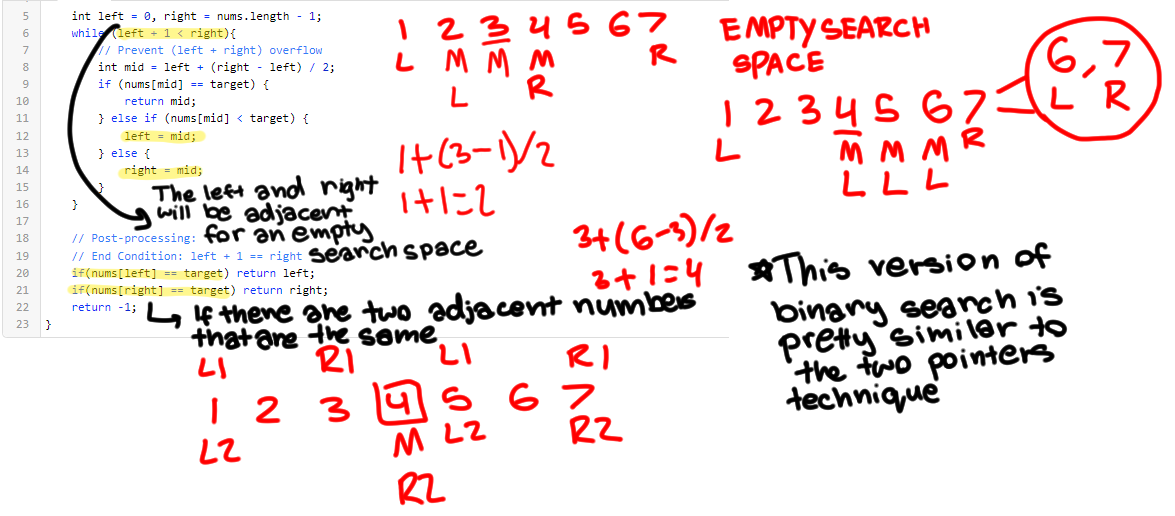 5 int left = 0, right = nums.length - 1;
6 while (left + 1 < right){
7 // Prevent (left + right) overflow
8 int mid = left + (right - left) / 2;
9 if (nums[mid] == target) {
10 return mid;
11 } else if (nums[mid] < target) {
12 left = mid;
13 } else {
14 right = mid;
15 }
16 }
17
18 // Post-processing:
19 // End Condition: left + 1 == right
20 if(nums[left] == target) return left;
21 if(nums[right] == target) return right;
22 return -1;
23 }
The left and right
will be adjacent
for an empty
search space
If there are two adjacent numbers
that are the same
1 2 3 4 5 6 7
L M M M R
L R
1+(3-1)/2
1+1=2
EMPTY SEARCH
SPACE
1 2 3 4 5 6 7
L M M M R
L L L
6,7
L R
3+(6-3)/2
3+1=4
*This version of
binary search is
pretty similar to
the two pointers
technique
L1 R1 L1 R1
1 2 3 4 5 6 7
L2 M L2 R2
R2